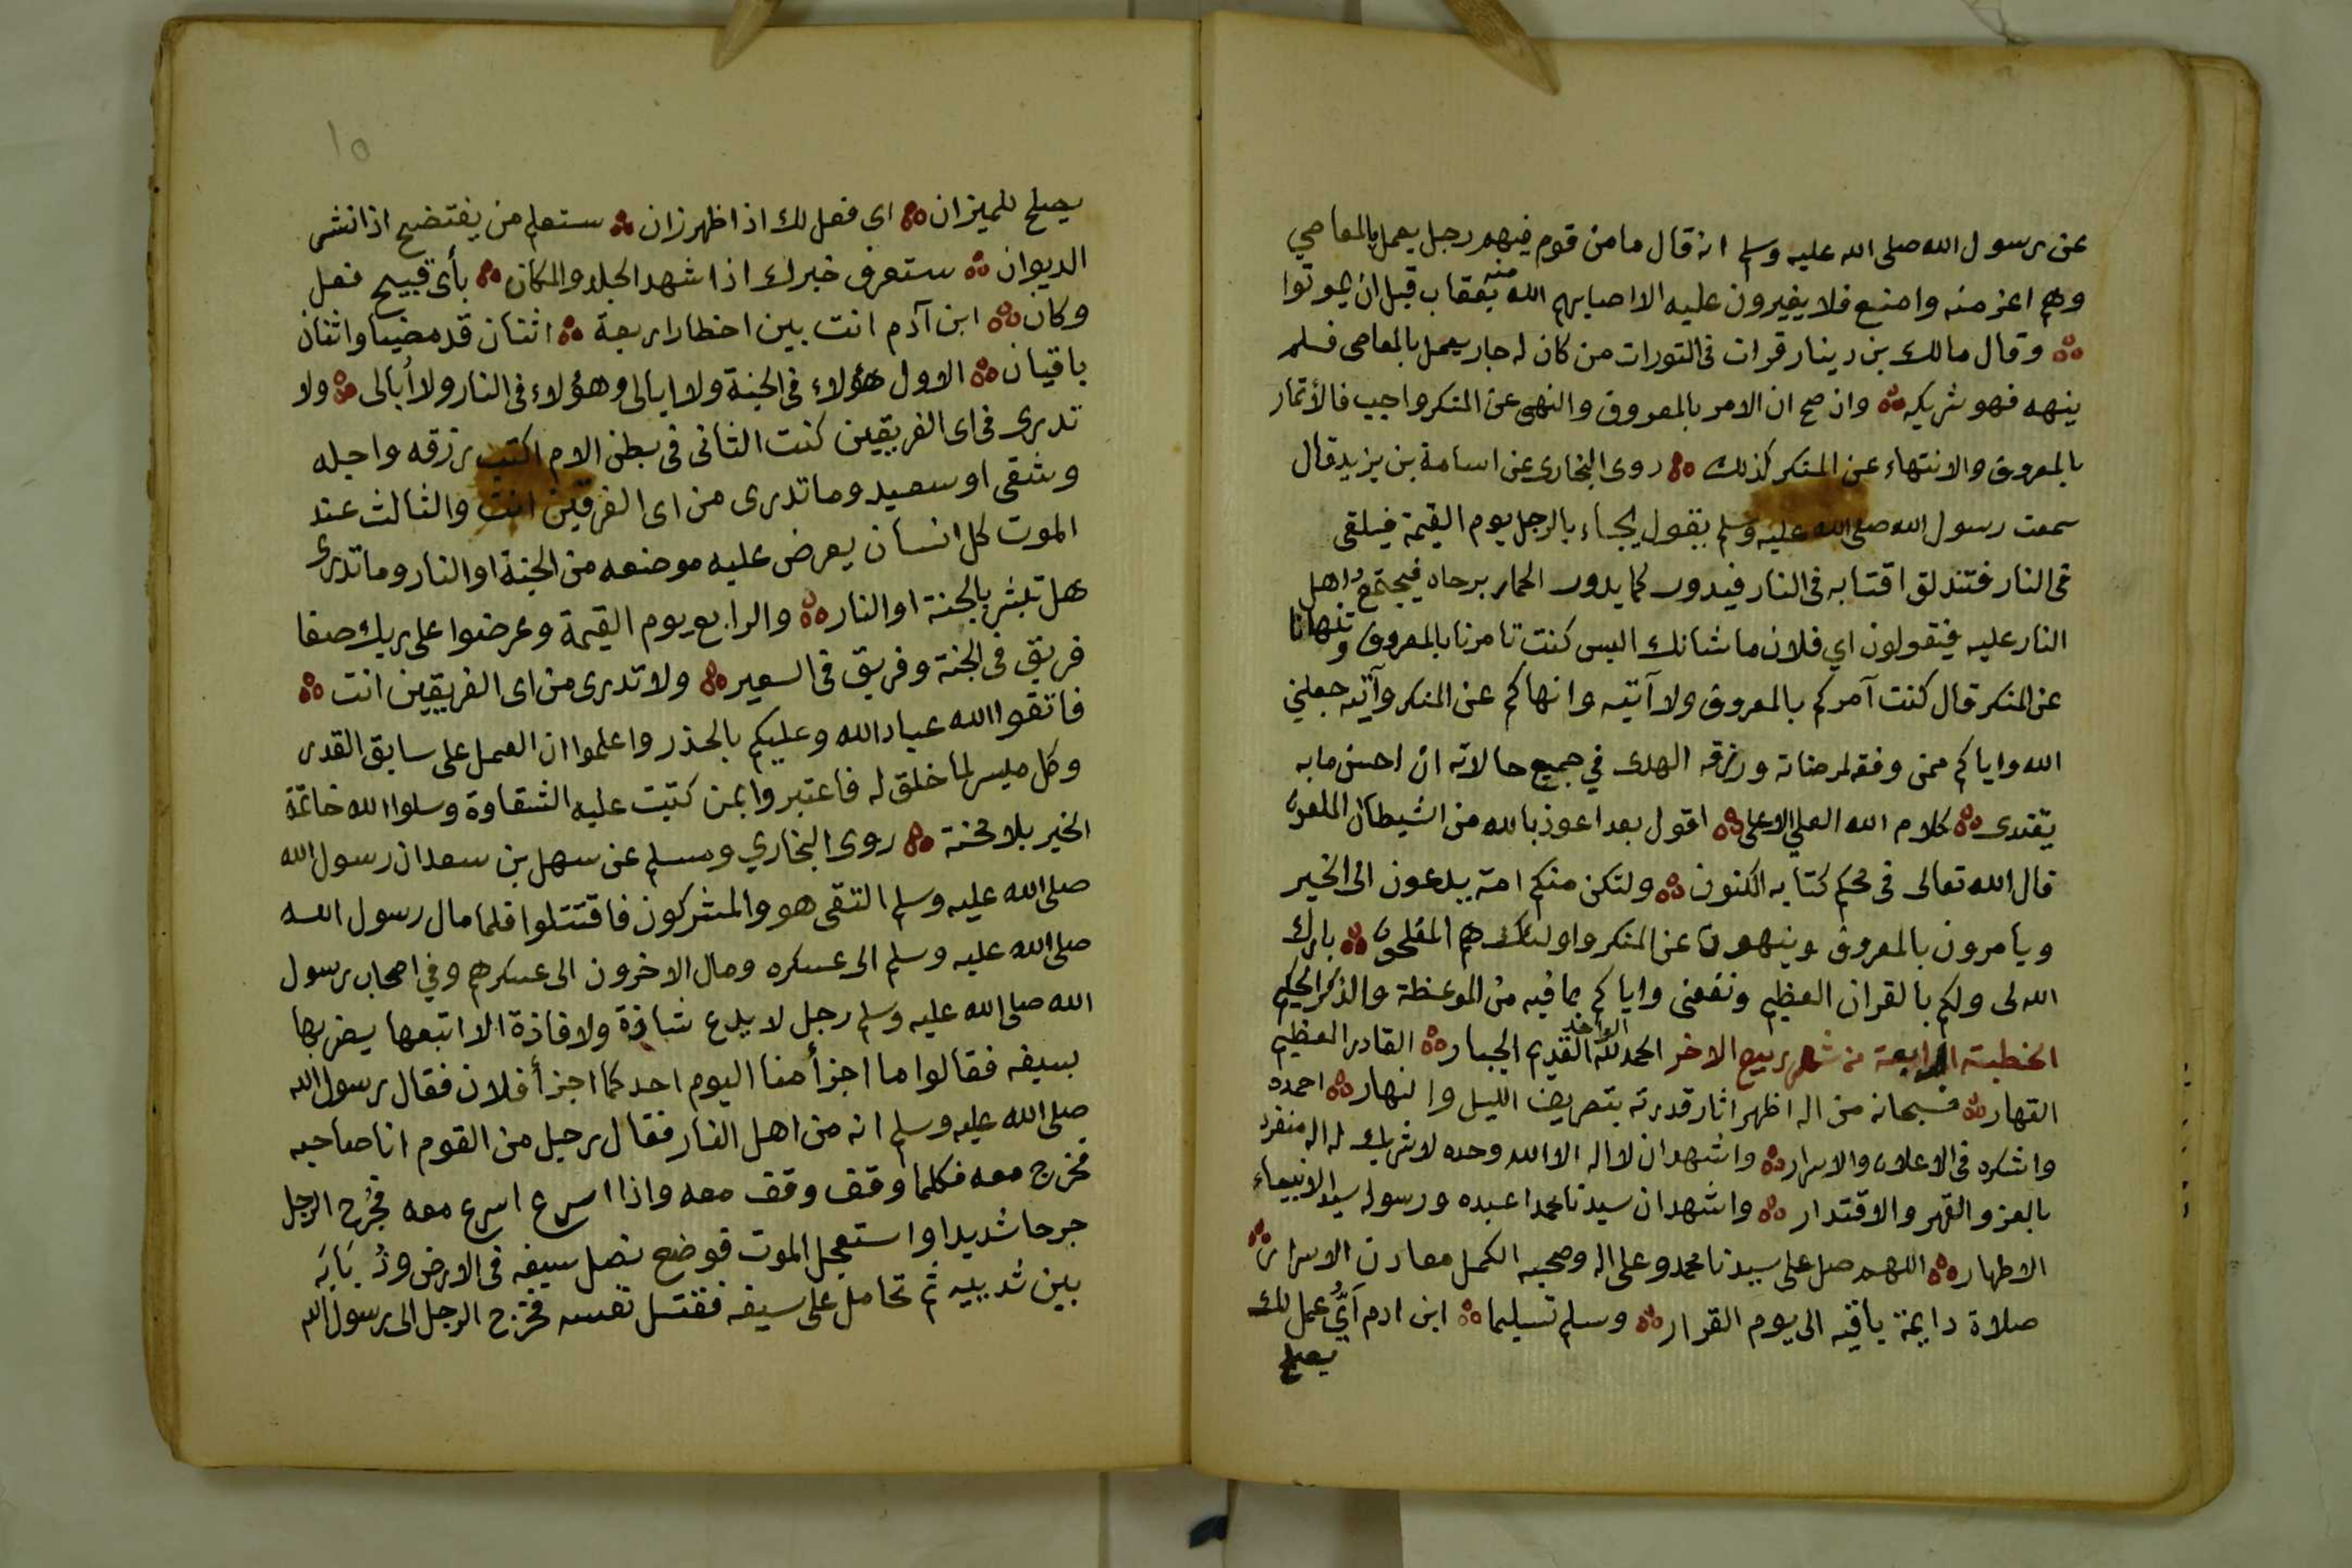 عن رسول الله صلى الله عليه وسلم انه قال ما من قوم فيهم رجل يعمل بالمعاصي
وهم اعز منه وامنع فلا يغيرون عليه الا اصابهم الله منه بعقاب قبل ان يموتوا
وقال مالك بن دينار قرات فى التورات من كان له جار يعمل بالمعاصى فلم
ينهه فهو شريكه وان صح ان الامر بالمعروف والنهى عن المنكر واجب فالأتمار
بالمعروف والانتهاء عن المنكر كذلك روى البخارى عن اسامة بن يزيد قال
سمعت رسول الله صلى الله عليه وسلم يقول يجاء بالرجل يوم القيمة فيلقى
فى النار فتندلق اقتابه فى النار فيدور كما يدور الحمار برحاه فيجتمع اهل
النار عليه فيقولون اي فلان ما شانك اليس كنت تامرنا بالمعروف وتنهانا
عن المنكر قال كنت آمركم بالمعروف ولا آتيه وانهاكم عن المنكر وآتيه جعلني
الله واياكم ممن وفقه لمرضاته ورزقه الهدى في جميع حالاته ان احسن ما به
يقتدى كلام الله العلي الاعلى اقول بعد اعوذ بالله من الشيطان الملعون
قال الله تعالى فى محكم كتابه المكنون ولتكن منكم امة يدعون الى الخير
ويامرون بالمعروف وينهون عن المنكر واولئك هم المفلحون بارك
الله لى ولكم بالقران العظيم ونفعنى واياكم بما فيه من الموعظة والذكر الحكيم
الخطبته الرابعة من شهر ربيع الاخر الحمد لله القديم الواحد الجبار القادر العظيم
القهار فسبحانه من اله اظهر اثار قدرته بتصريف الليل والنهار احمده
واشكره فى الاعلان والاسرار واشهد ان لا اله الا الله وحده لا شريك له اله منفرد
بالعز والقهر والاقتدار واشهد ان سيدنا محمدا عبده ورسوله سيد الانبياء
الاطهار اللهم صل على سيدنا محمد وعلى اله وصحبه الكمل معادن الاسرار
صلاة دايمة باقيه الى يوم القرار وسلم تسليما ابن ادم اَيُّ عمل لك
يصلح
١٥
يصلح للميزان اى فعل لك اذا ظهر زان ستعلم من يفتضح اذا نشر
الديوان ستعرف خبرك اذا شهد الجلد والمكان بأى قبيح فعل
وكان ابن آدم انت بين اخطار اربعة اثنان قد مضيا واثنان
باقيان الاول هؤلاء فى الجنة ولا ابالى وهؤلاء فى النار ولا أبالى ولا
تدرى فى اى الفريقين كنت الثانى فى بطن الام اكتب رزقه واجله
وشقى او سعيد وما تدرى من اى الفرقين انت والثالث عند
الموت كل انسان يعرض عليه موضعه من الجنة او النار وما تدرى
هل تبشر بالجنة او النار والرابع يوم القيمة وعرضوا على ربك صفا
فريق فى الجنة وفريق فى السعير ولا تدرى من اى الفريقين انت
فاتقوا الله عباد الله وعليكم بالحذر واعلموا ان العمل على سابق القدر
وكل ميسر لما خلق له فاعتبروا بمن كتبت عليه الشقاوة وسلوا الله خاتمة
الخير بلا محنة روى البخاري ومسلم عن سهل بن سعد ان رسول الله
صلى الله عليه وسلم التقى هو والمشركون فاقتتلوا فلما مال رسول الله
صلى الله عليه وسلم الى عسكره ومال الاخرون الى عسكرهم وفي اصحاب رسول
الله صلى الله عليه وسلم رجل لا يدع شاذة ولا فاذة الا اتبعها يضربها
بسيفه فقالوا ما اجزأ منا اليوم احد كما اجزأ فلان فقال رسول الله
صلى الله عليه وسلم انه من اهل النار فقال رجل من القوم انا صاحبه
فخرج معه فكلما وقف وقف معه واذا اسرع اسرع معه فجُرح الرجل
جرحا شديدا واستعجل الموت فوضع نصل سيفه فى الارض وذُبَابَه
بين ثدييه ثم تحامل على سيفه فقتل نفسه فخرج الرجل الى رسول الله